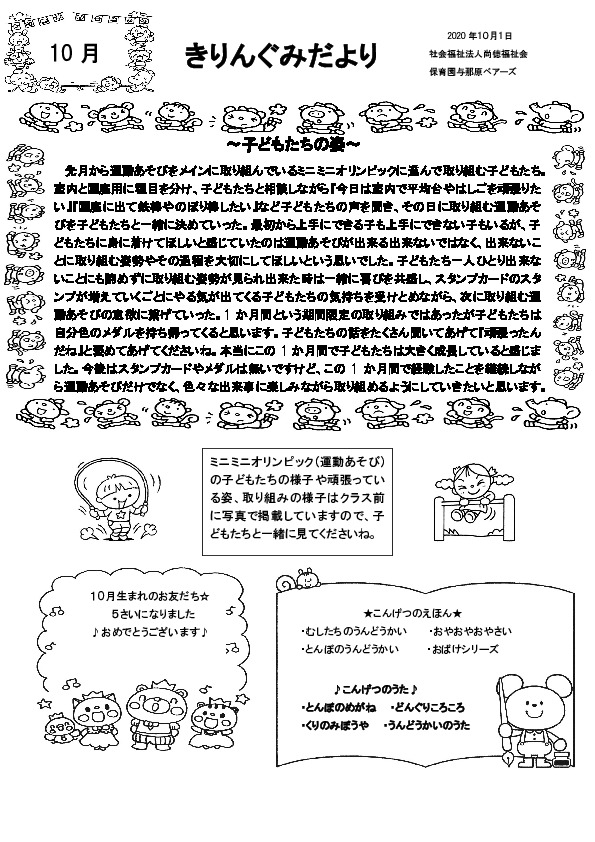 10 月
きりんぐみだより
2020 年10月1日
社会福祉法人尚徳福祉会
保育園与那原ベアーズ
～子どもたちの姿～
先月から運動あそびをメインに取り組んでいるミニミニオリンピックに進んで取り組む子どもたち。
室内と園庭用に種目を分け、子どもたちと相談しながら『今日は室内で平均台やはしごを頑張りた
い』『園庭に出て鉄棒やのぼり棒したい』など子どもたちの声を聞き、その日に取り組む運動あそ
びを子どもたちと一緒に決めていった。最初から上手にできる子も上手にできない子もいるが、子
どもたちに身に着けてほしいと感じていたのは運動あそびが出来る出来ないではなく、出来ないこ
とに取り組む姿勢やその過程を大切にしてほしいという思いでした。子どもたち一人ひとり出来な
いことにも諦めずに取り組む姿勢が見られ出来た時は一緒に喜びを共感し、スタンプカードのスタ
ンプが増えていくごとにやる気が出てくる子どもたちの気持ちを受けとめながら、次に取り組む運
動あそびの意欲に繋げていった。1 か月間という期間限定の取り組みではあったが子どもたちは
自分色のメダルを持ち帰ってくると思います。子どもたちの話をたくさん聞いてあげて『頑張ったん
だね』と褒めてあげてくださいね。本当にこの 1 か月間で子どもたちは大きく成長していると感じま
した。今後はスタンプカードやメダルは無いですけど、この 1 か月間で経験したことを継続しなが
ら運動あそびだけでなく、色々な出来事に楽しみながら取り組めるようにしていきたいと思います。
ミニミニオリンピック（運動あそび）
の子どもたちの様子や頑張ってい
る姿、取り組みの様子はクラス前
に写真で掲載していますので、子
どもたちと一緒に見てくださいね。
10月生まれのお友だち☆
5さいになりました
♪おめでとうございます♪
★こんげつのえほん★
・むしたちのうんどうかい ・おやおやおやさい
・とんぼのうんどうかい ・おばけシリーズ
♪こんげつのうた♪
・とんぼのめがね ・どんぐりころころ
・くりのみぼうや ・うんどうかいのうた